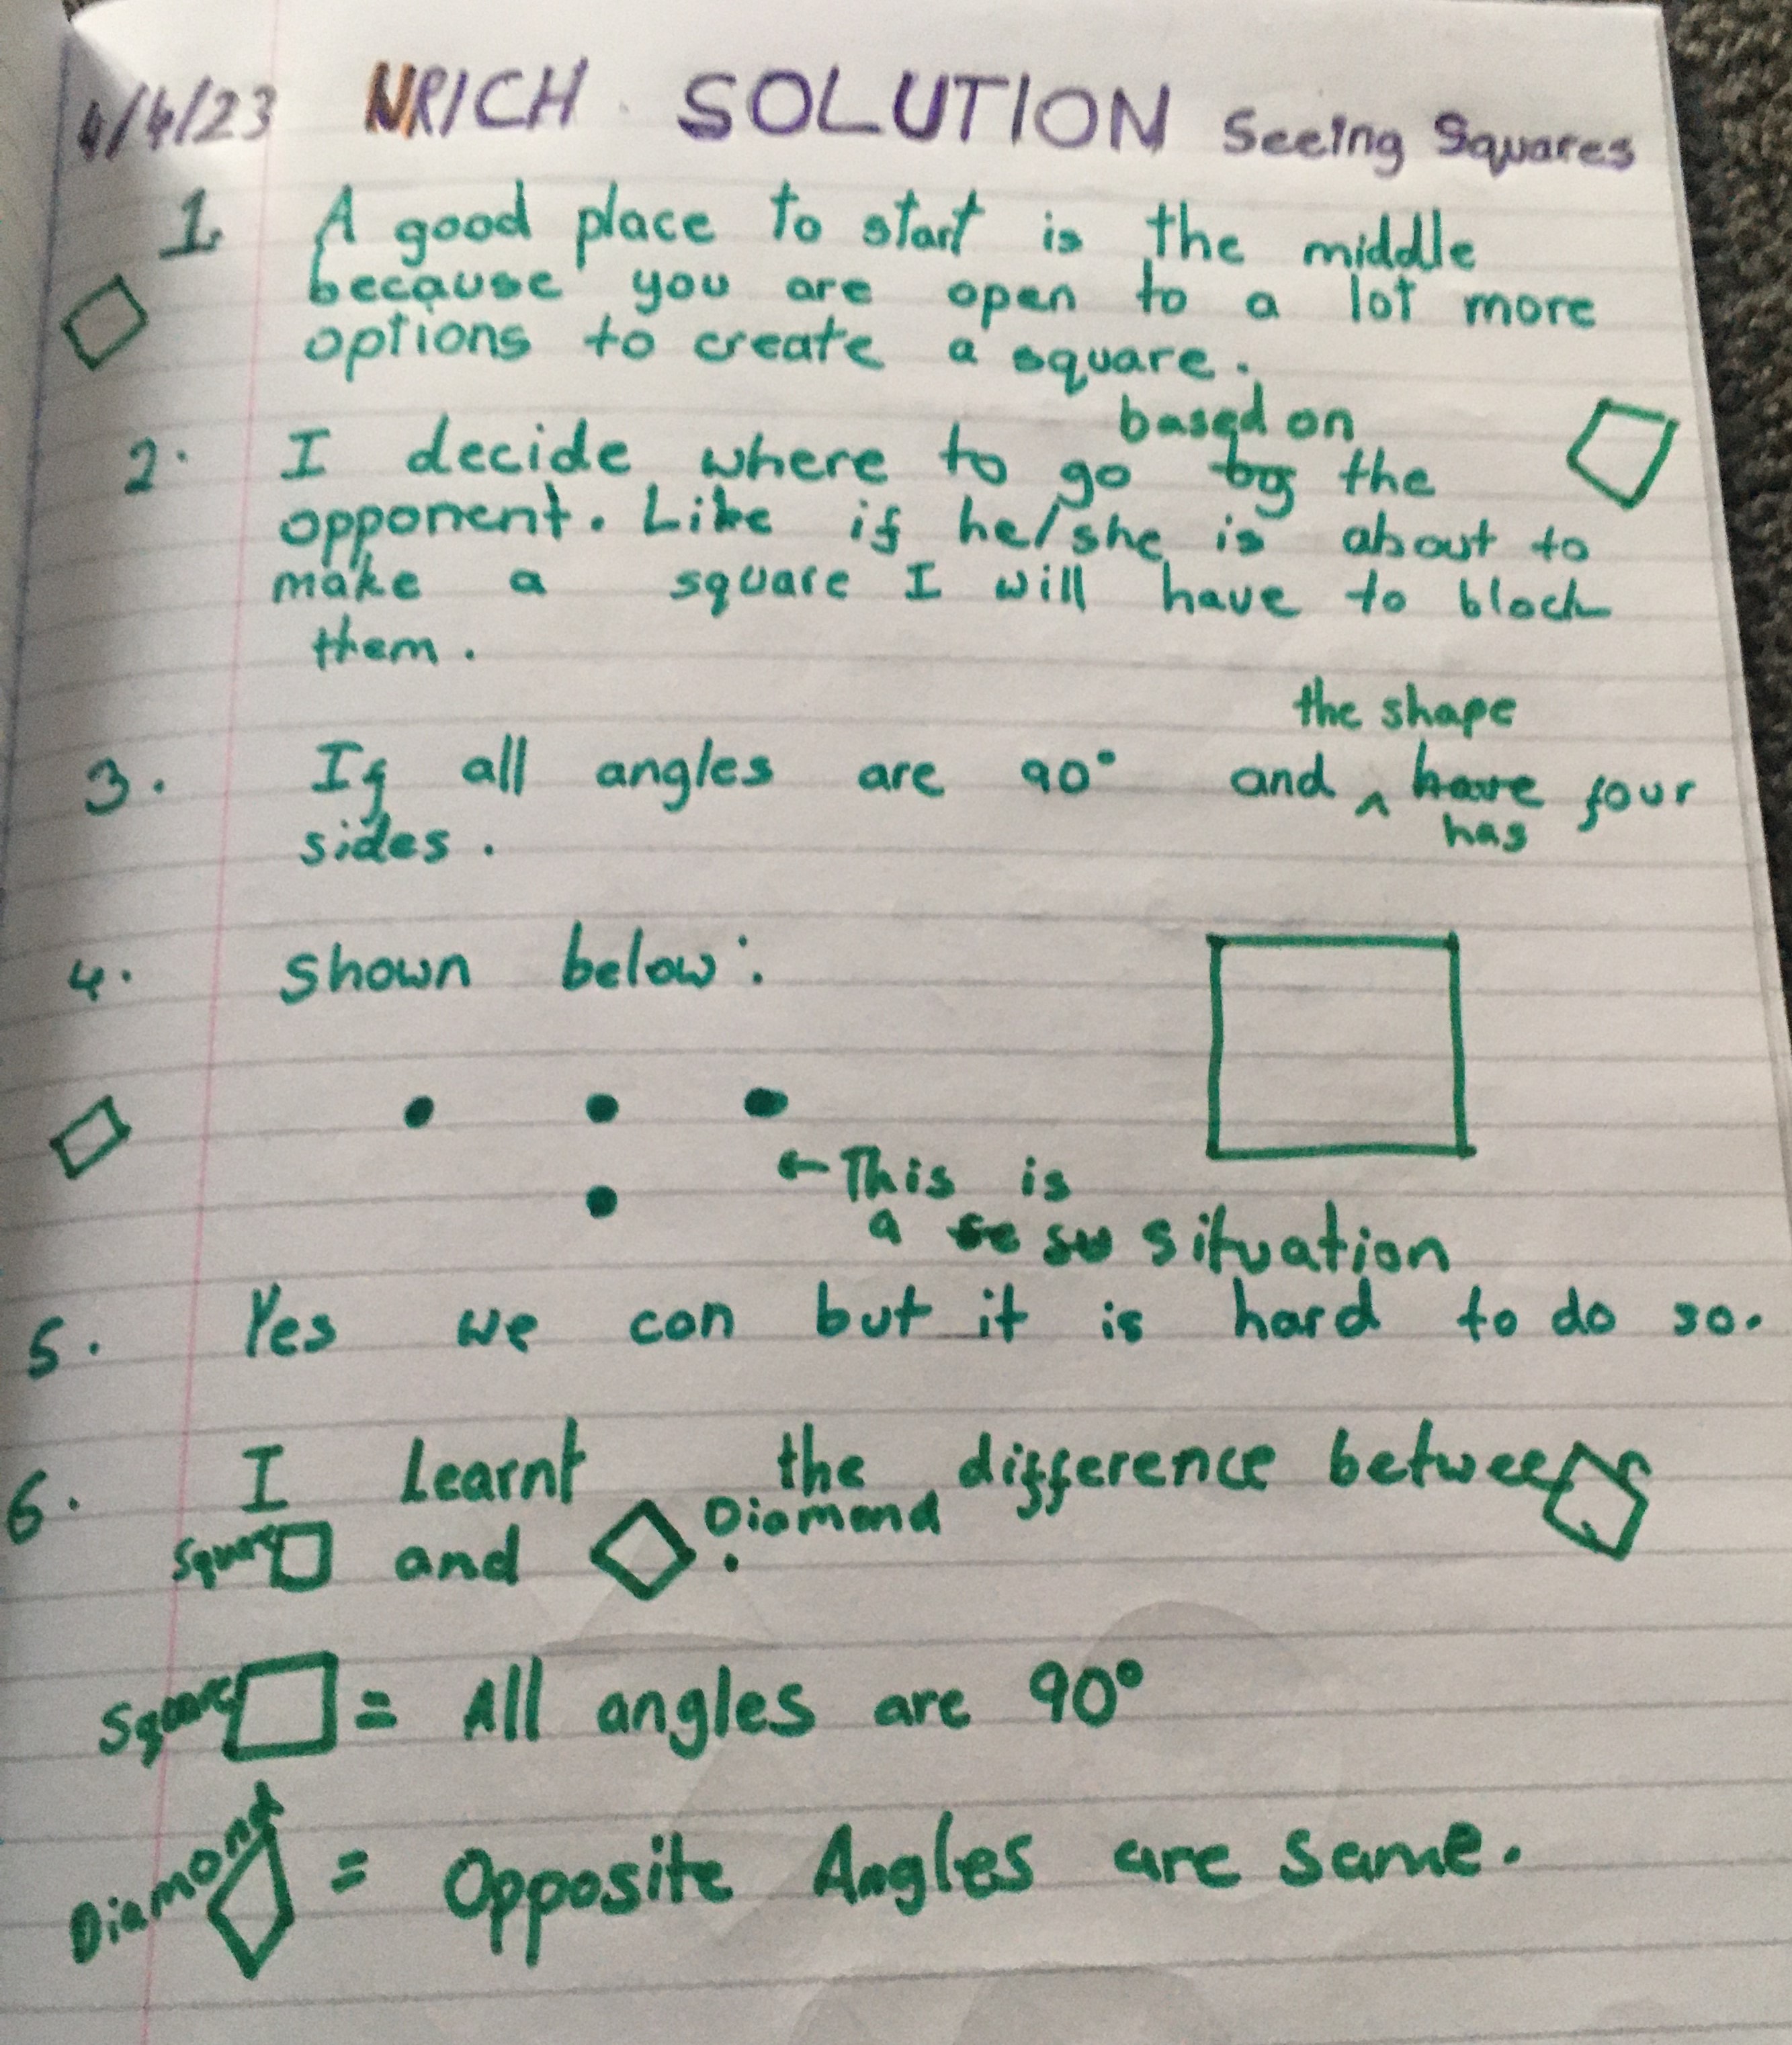 4/4/23 NRICH SOLUTION Seeing Squares
1. A good place to start is the middle
because you are open to a lot more
options to create a square.
based on
2. I decide where to go by the
opponent. Like if he/she is about to
make a square I will have to block
them.
the shape
3. If all angles are 90° and ^ have four
has
sides.
4. shown below:
←This is
a se su situation
5. Yes we can but it is hard to do so.
6. I Learnt the difference between
Square and Diamond.
Square = All angles are 90°
Diamond = Opposite Angles are same.